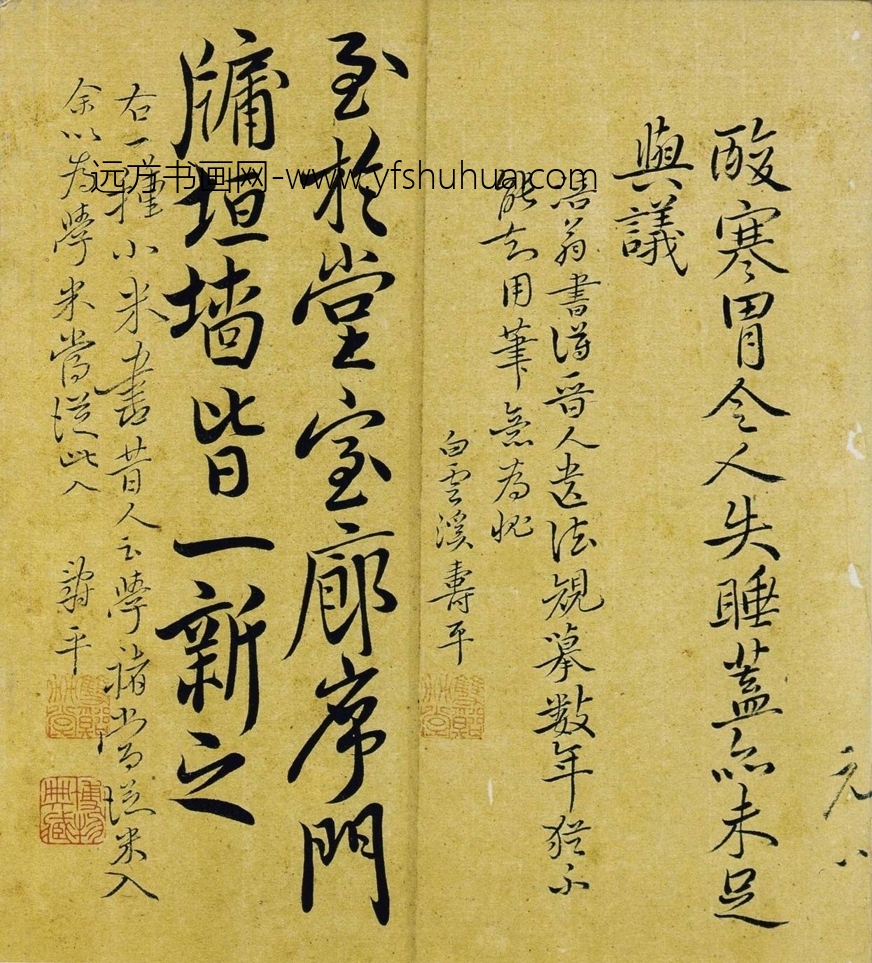 元
酸寒胃令人失睡蓋亦未足
與議
涪翁書得晉人遺法規摹數年猶不
能知用筆意為愧
白雲溪壽平
至於堂室廊序門
牖垣墻皆一新之
右一種小米書昔人云學褚當從米入
余以為學米當從此入
壽平
远方书画网-www.yfshuhua.com